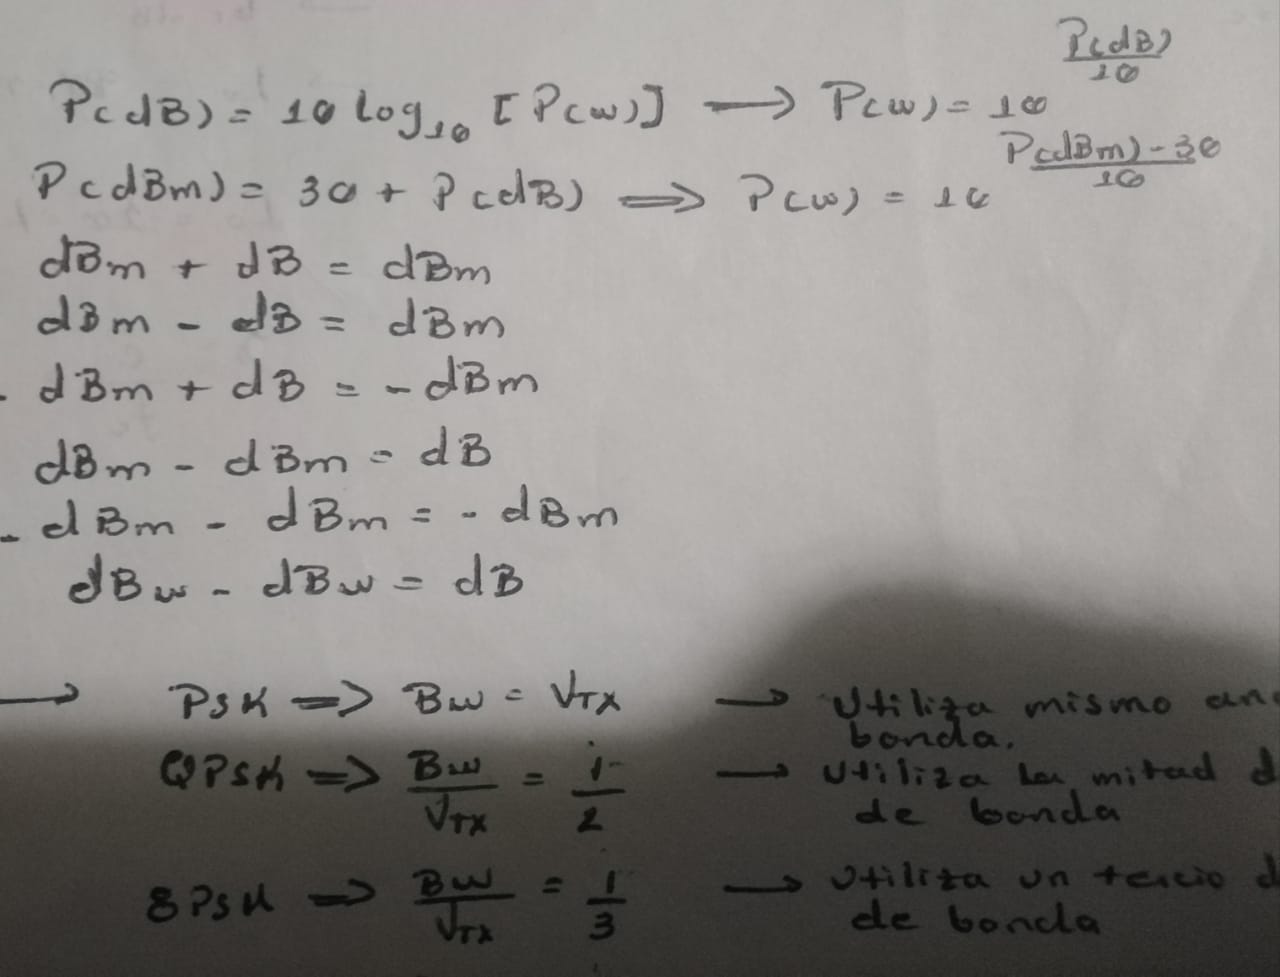 P(dB) = 10 log₁₀ [P(w)] → P(w) = 10^(P(dB)/10)
P(dBm) = 30 + P(dB) ⇒ P(w) = 10^((P(dBm)-30)/10)
dBm + dB = dBm
dBm - dB = dBm
- dBm + dB = - dBm
dBm - dBm = dB
- dBm - dBm = - dBm
dBw - dBw = dB
→ PSK ⇒ BW = VTX → Utiliza mismo an
banda.
QPSK ⇒ BW/VTX = 1/2 → Utiliza la mitad d
de banda
8PSK ⇒ BW/VTX = 1/3 → Utiliza un tercio d
de banda